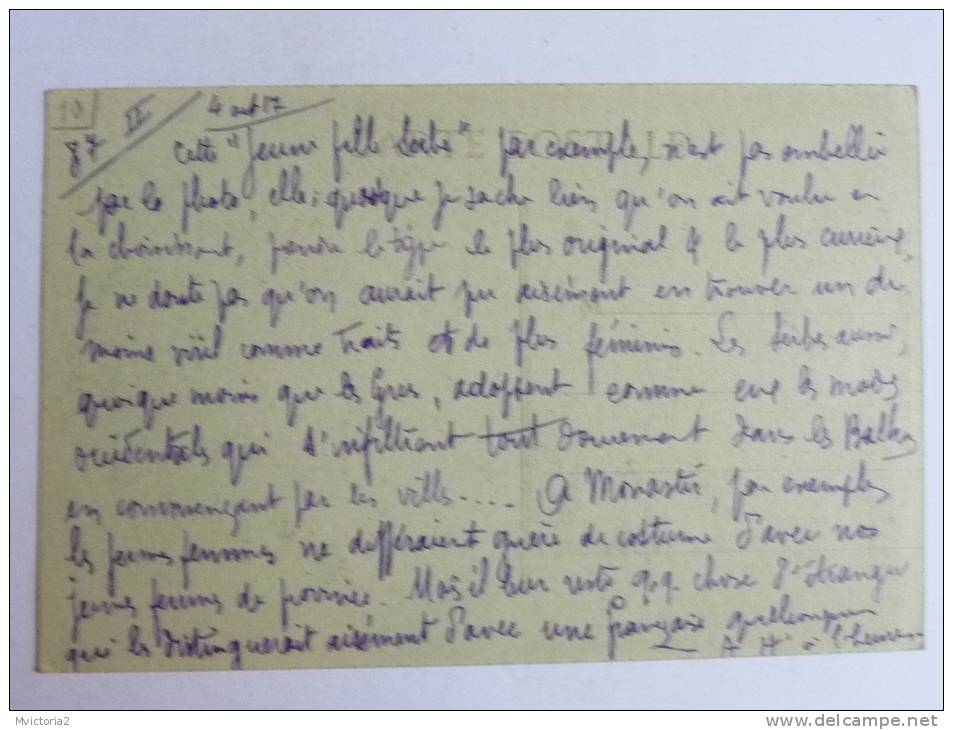 10
87 II 4 aout 17
Cette "Jeune fille Serbe" par exemple, n'est pas embellie
par la photo, elle; quoique je sache bien qu'on ait voulu en
la choisissant, prendre le type le plus original & le plus curieux,
je ne doute pas qu'on aurait pu aisément en trouver un de
moins viril comme traits et de plus féminin. Les Serbes aussi,
quoique moins que les Grecs, adoptent comme eux les modes
occidentales qui s'infiltrent tout doucement dans les Balkans
en commençant par les villes.... A Monastir, par exemple,
les jeunes femmes ne différaient guère de costume d'avec nos
jeunes femmes de province. Mais il leur reste qq. chose d'étranger
qui les distinguerait aisément d'avec une française quelconque
A H à
CARTE POSTALE
Mvictoria2
www.delcampe.net